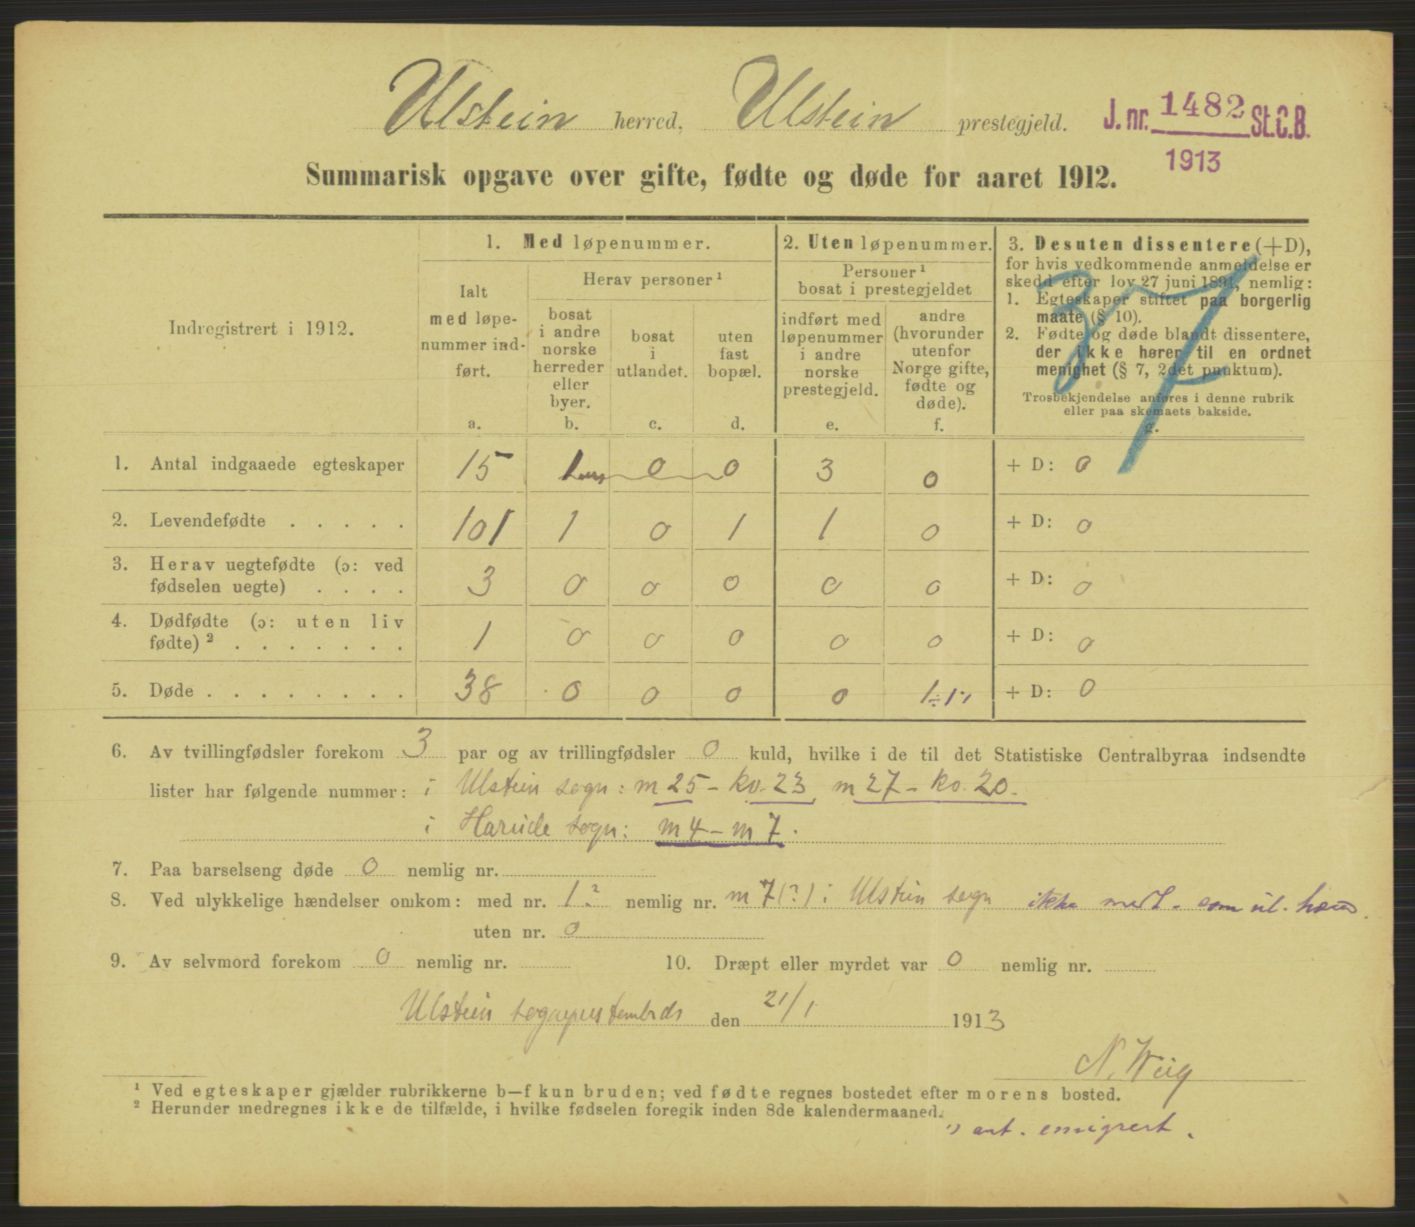 Ulstein herred, Ulstein prestegjeld. J. nr. 1482 St.C.B.
1913
Summarisk opgave over gifte, fødte og døde for aaret 1912.
Indregistrert i 1912.
1. Med løpenummer.
Ialt med løpe-nummer ind-ført.
a.
Herav personer ¹
bosat i andre norske herreder eller byer.
b.
bosat i utlandet.
c.
uten fast bopæl.
d.
2. Uten løpenummer.
Personer ¹ bosat i prestegjeldet
indført med løpenummer i andre norske prestegjeld.
e.
andre (hvorunder utenfor Norge gifte, fødte og døde).
f.
3. Desuten dissentere (+D),
for hvis vedkommende anmeldelse er
skedd efter lov 27 juni 1891, nemlig:
1. Egteskaper stiftet paa borgerlig
maate (§ 10).
2. Fødte og døde blandt dissentere,
der ikke hører til en ordnet
menighet (§ 7, 2det punktum).
Trosbekjendelse anføres i denne rubrik
eller paa skemaets bakside.
g.
37
1. Antal indgaaede egteskaper 15 1 0 0 3 0 + D: 0
2. Levendefødte . . . . . 101 1 0 1 1 0 + D: 0
3. Herav uegtefødte (ɔ: ved
fødselen uegte) . . . . 3 0 0 0 0 0 + D: 0
4. Dødfødte (ɔ: uten liv
fødte) ² . . . . . . . 1 0 0 0 0 0 + D: 0
5. Døde . . . . . . . . 38 0 0 0 0 1 ÷ 1 ¹⁾ + D: 0
6. Av tvillingfødsler forekom 3 par og av trillingfødsler 0 kuld, hvilke i de til det Statistiske Centralbyraa indsendte
lister har følgende nummer: i Ulstein sogn: m 25 – kv. 23, m 27 – kv. 20.
i Hareide sogn: m 4 – m 7.
7. Paa barselseng døde 0 nemlig nr.
8. Ved ulykkelige hændelser omkom: med nr. 1? nemlig nr. m 7 (?) i Ulstein sogn ikke medt. som ul. hæn.
uten nr. 0
9. Av selvmord forekom 0 nemlig nr. 10. Dræpt eller myrdet var 0 nemlig nr.
Ulstein den 21/1 1913
¹ Ved egteskaper gjælder rubrikkerne b—f kun bruden; ved fødte regnes bostedet efter morens bosted.
² Herunder medregnes ikke de tilfælde, i hvilke fødselen foregik inden 8de kalendermaaned.
¹⁾ ant. emigrert.